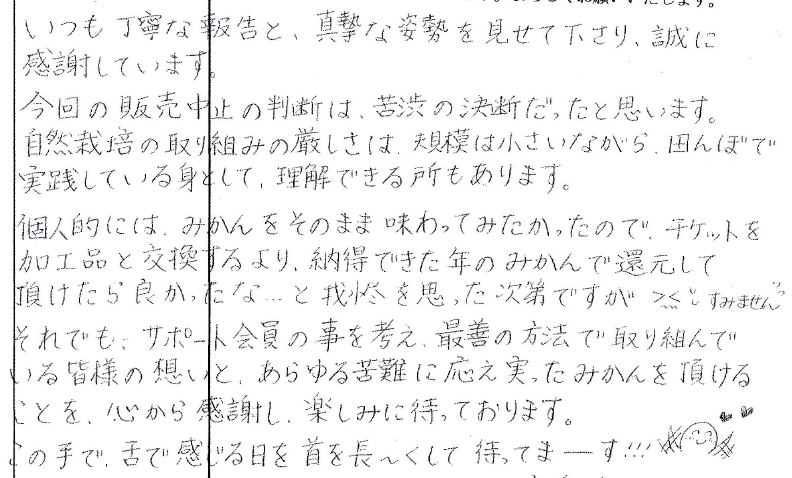 いつも丁寧な報告と、真摯な姿勢を見せて下さり、誠に
感謝しています。
今回の販売中止の判断は、苦渋の決断だったと思います。
自然栽培の取り組みの厳しさは、規模は小さいながら、田んぼで
実践している身として、理解できる所もあります。
個人的には、みかんをそのまま味わってみたかったので、チケットを
加工品と交換するより、納得できた年のみかんで還元して
頂けたら良かったな…と を思った次第ですが すみません
それでも、サポート会員の事を考え、最善の方法で取り組んで
いる皆様の想いと、あらゆる苦難に応え実ったみかんを頂ける
ことを、心から感謝し、楽しみに待っております。
この手で、舌で感じる日を首を長〜くして待ってまーす!!!